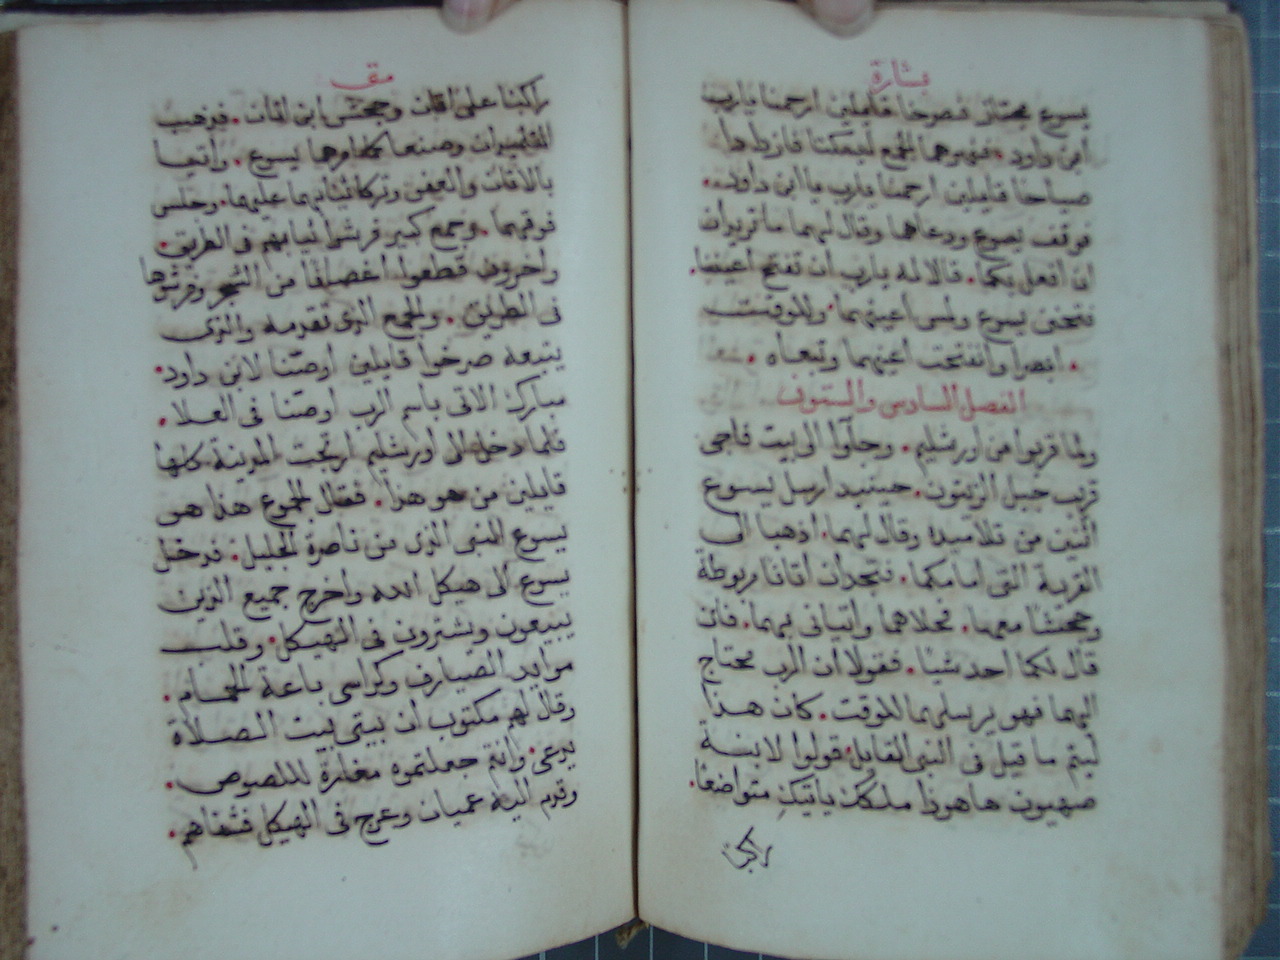 بشارة
يسوع مجتاز فصرخا قايلين ارحمنا يارب
ابن داود. فنهرهما الجمع ليسكتا فازدادا
صياحا قايلين ارحمنا يارب يا ابن داود.
فوقف يسوع ودعاهما وقال لهما ما تريدان
ان افعل بكما. قالا له يارب ان تفتح اعيننا.
فتحنن يسوع ولمس اعينهما. وللوقت
. ابصرا وانفتحت اعينهما وتبعاه .
الفصل السادس والستون
ولما قربوا من اورشليم. وجاوا الى بيت فاجى
قرب جبل الزيتون. حينيد ارسل يسوع
اثنين من تلاميده وقال لهما. ادهبا الى
القرية التى امامكما. فتجدان اتانا مربوطة
وجحشا معها. فحلاهما واتيانى بهما. فان
قال لكما احد شيا. فقولا ان الرب محتاج
اليهما فهو يرسلهما للوقت. كان هدا
ليتم ما قيل فى النبى القايل. قولوا لابنة
صهيون هاهودا ملكك ياتيك متواضعا.
راكبا
متى
راكبا على اتان وجحش ابن اتان. فدهب
التلميدان وصنعا كما امرهما يسوع. واتيا
بالاتان والعفو وتركا ثيابهما عليهما. وجلس
فوقهما. وجمع كبير فرشوا ثيابهم فى الطريق.
واخرون قطعوا اغصانا من الشجر وفرشوها
فى الطريق. والجمع الدى تقدمه والدى
يتبعه صرخوا قايلين اوصنا لابن داود.
مبارك الاتى باسم الرب اوصنا فى العلا.
فلما دخل الى اورشليم ارتجت المدينة كلها
قايلين من هو هدا. فقال الجموع هدا هو
يسوع النبى الدى من ناصرة الجليل. فدخل
يسوع الى هيكل الله واخرج جميع الدين
يبيعون ويشترون فى الهيكل. وقلب
موايد الصيارف وكراسى باعة الحمام.
وقال لهم مكتوب ان بيتى بيت الصلاة
يدعى. وانتم جعلتموه مغارة للصوص.
وقدم اليه عميان وعرج فى الهيكل فشفاهم.